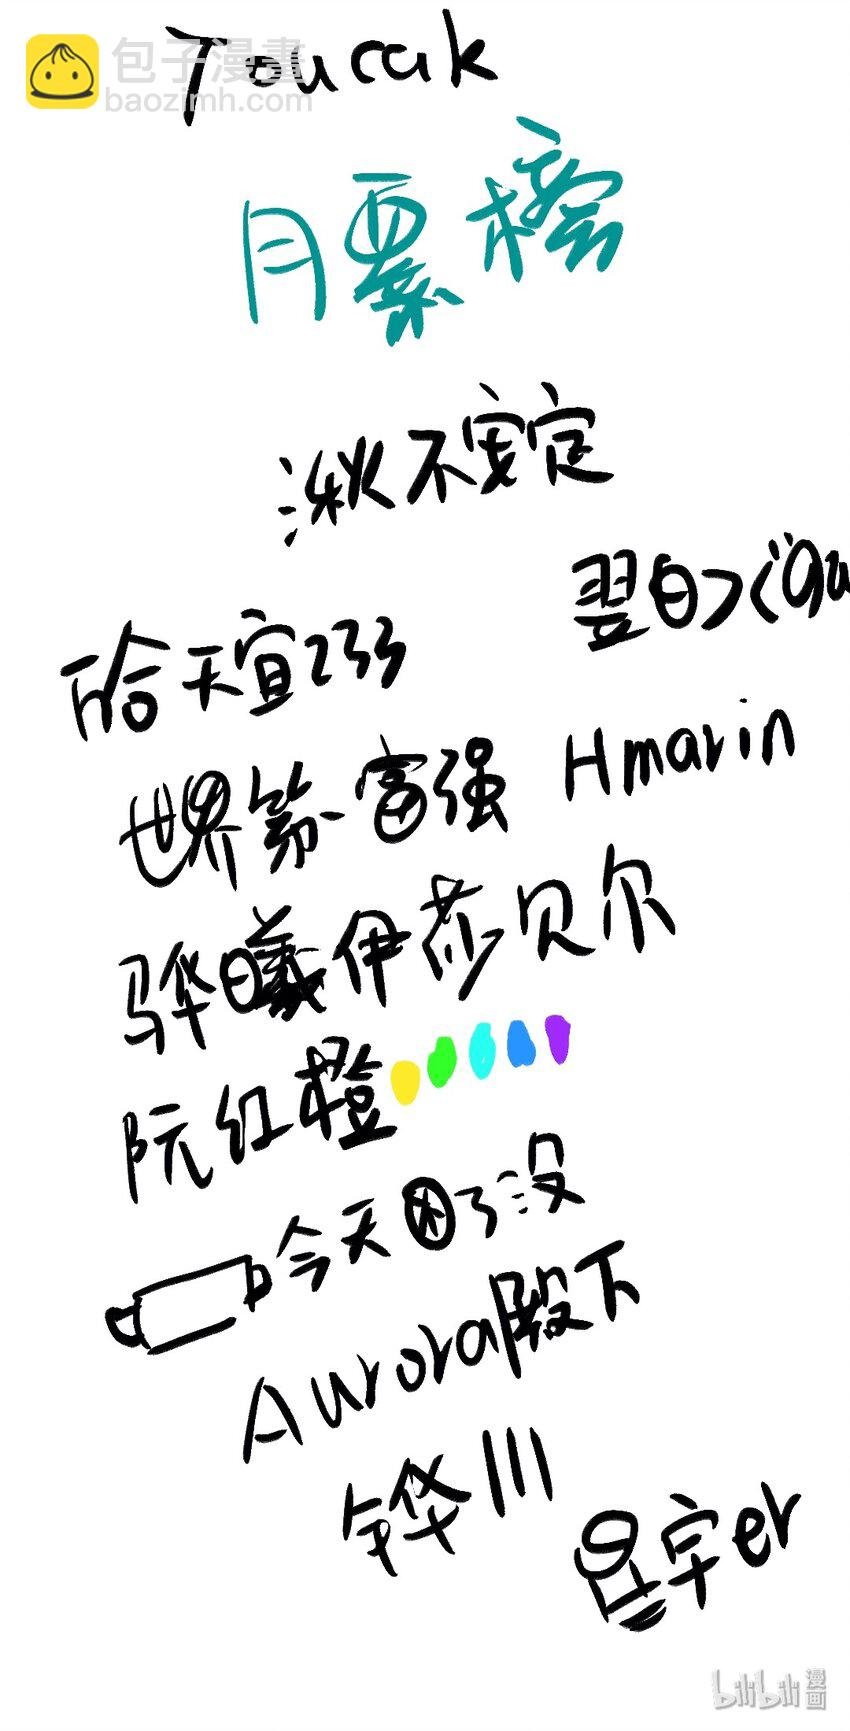 Tourak
包子漫畫
baozimh.com
月票榜
湫不安定
翌日
哈天宜233
世界第一富强 Hmarin
骅曦伊莎贝尔
阮红橙
今天困了没
Aurora殿下
铧川
星宇er
bilibili漫画